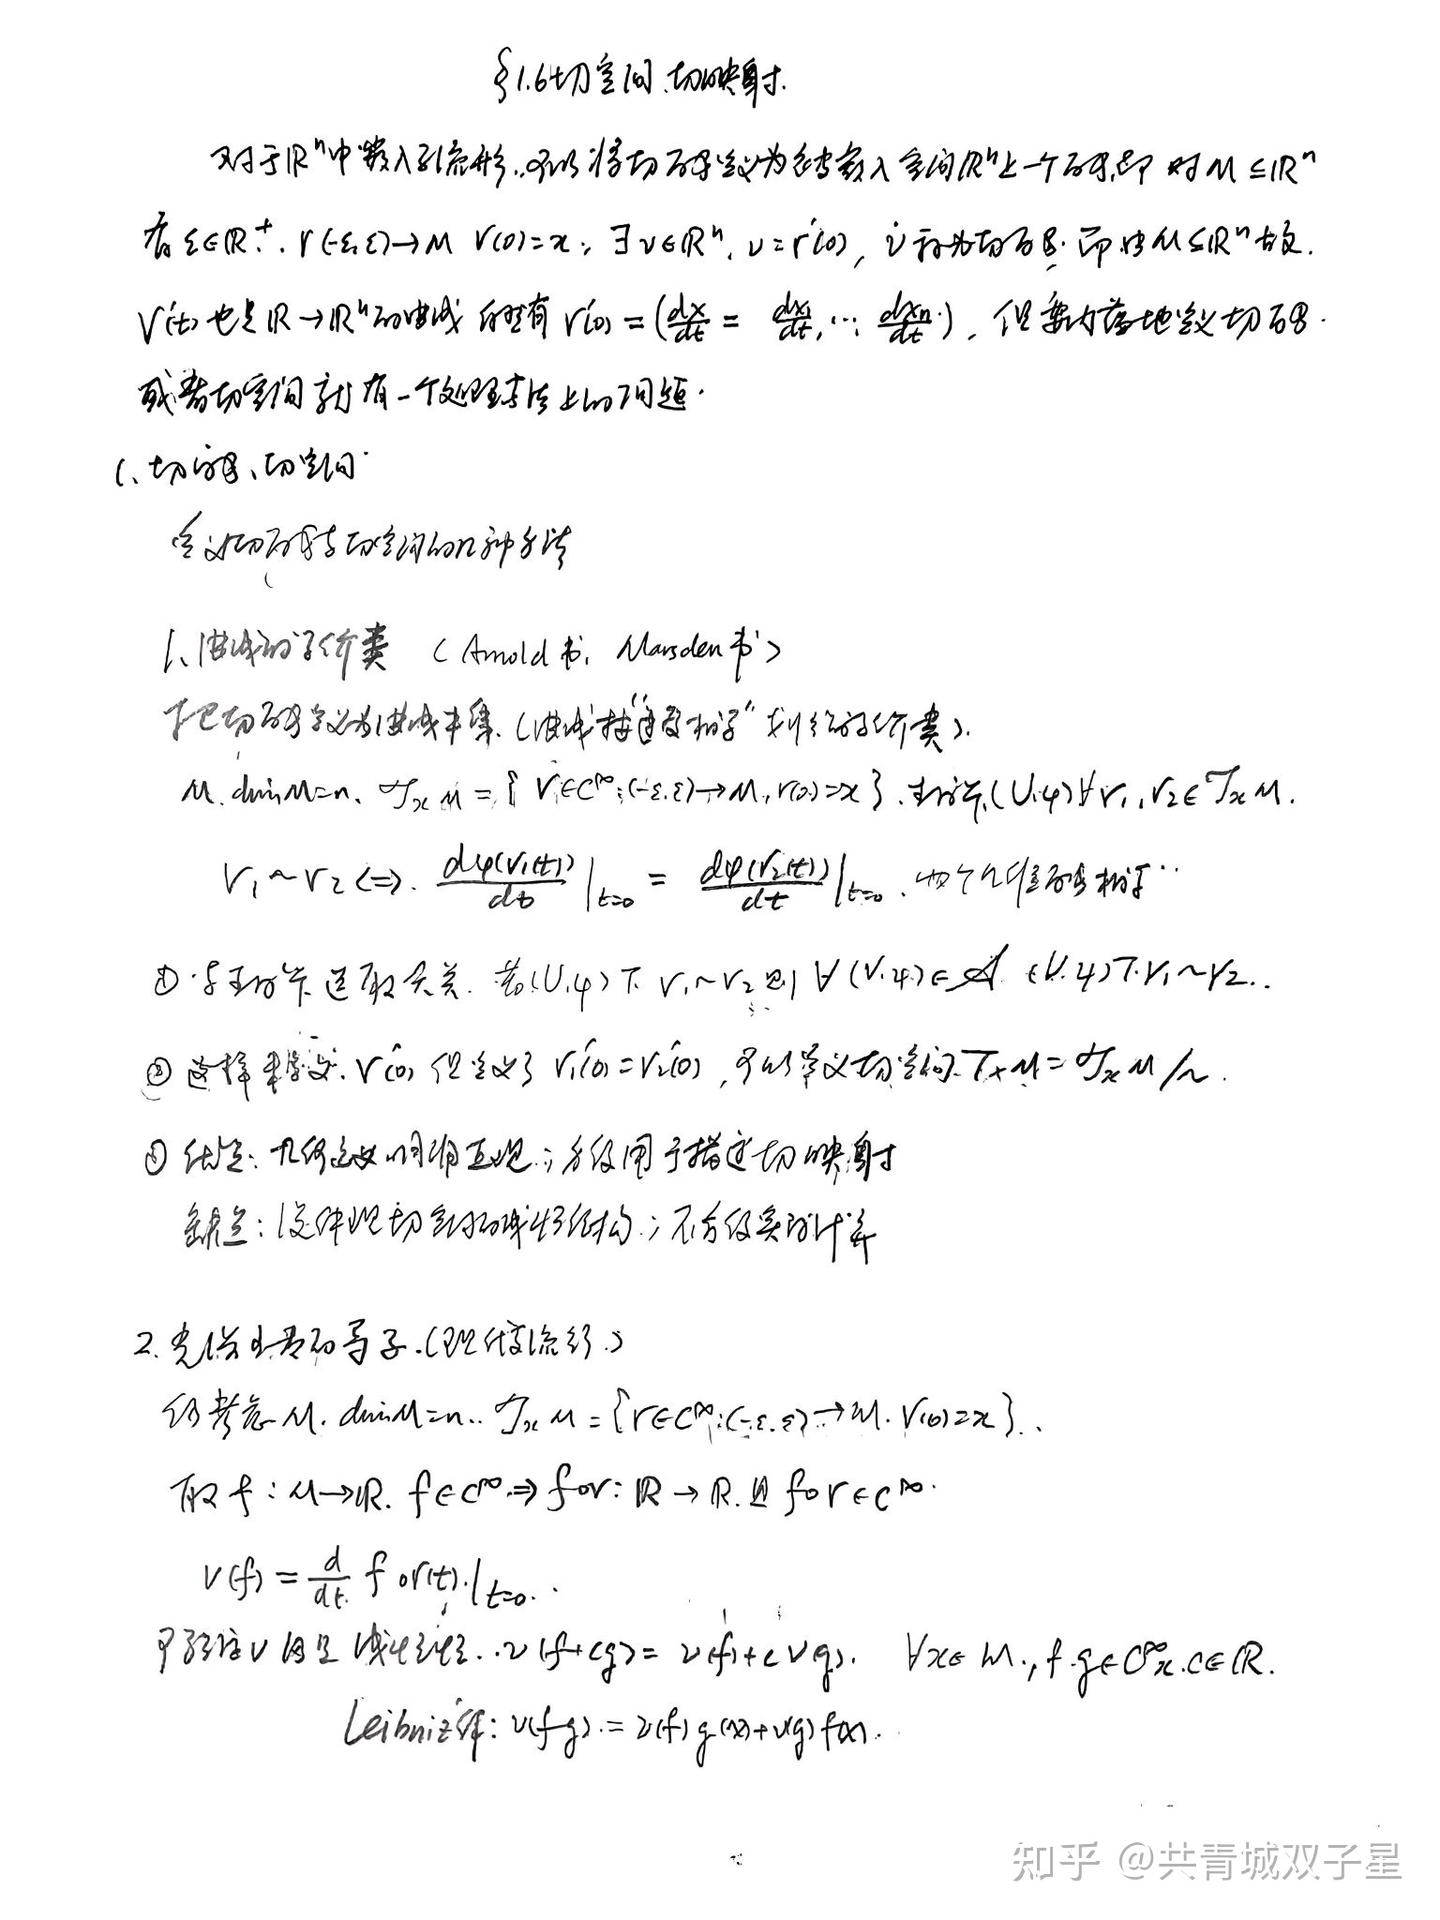 §1.6 切空间、切映射.
对于ℝⁿ中嵌入子流形,可以将切向量定义为 嵌入空间ℝⁿ上一个向量,即对M⊆ℝⁿ
有ε∈ℝ⁺. r(-ε,ε)→M r(0)=x, ∃v∈ℝⁿ, v=r'(0), v称为切向量. 即由M⊆ℝⁿ故.
r(t)也是ℝ→ℝⁿ的曲线 有 r'(0)=(dx/dt = dx₁/dt,…, dxn/dt), 但要内蕴地定义切向量.
或者切空间就有一个处理手法上的问题.
1、切向量、切空间.
定义切向量与切空间的几种方法
1、曲线的等价类 (Arnold书, Marsden书)
把切向量定义为曲线集.(曲线按"速度相等"划分的等价类).
M. dimM=n. 𝒯ₓM={r∈C^∞:(-ε,ε)→M, r(0)=x}. 坐标卡(U,φ) ∀r₁,r₂∈𝒯ₓM.
r₁~r₂⟺. dφ(r₁(t))/dt|t=0 = dφ(r₂(t))/dt|t=0. 两个n维向量相等..
① 与坐标卡选取无关. 若(U,φ)下 r₁~r₂ 则 ∀(V,ψ)∈𝒜 (V,ψ)下r₁~r₂..
② 这样未定义r'(0) 但定义了 r₁'(0)=r₂'(0), 可以定义切空间TₓM=𝒯ₓM/~.
③ 优点: 几何意义明确直观; 方便用于描述切映射
缺点: 没体现切空间的线性结构; 不方便实际计算
2. 光滑函数的导子.(现代流行.)
仍考虑M. dimM=n.. 𝒯ₓM={r∈C^∞:(-ε,ε)→M. r(0)=x}..
取f: M→ℝ. f∈C^∞ ⇒ f∘r: ℝ→ℝ. 且 f∘r∈C^∞.
v(f)=d/dt f∘r(t).|t=0..
可验证v满足 线性性..v(f+cg)=v(f)+cv(g). ∀x∈M., f.g∈C^∞ₓ.c∈ℝ.
Leibniz律: v(fg).=v(f)g(x)+v(g)f(x).
知乎 @共青城双子星